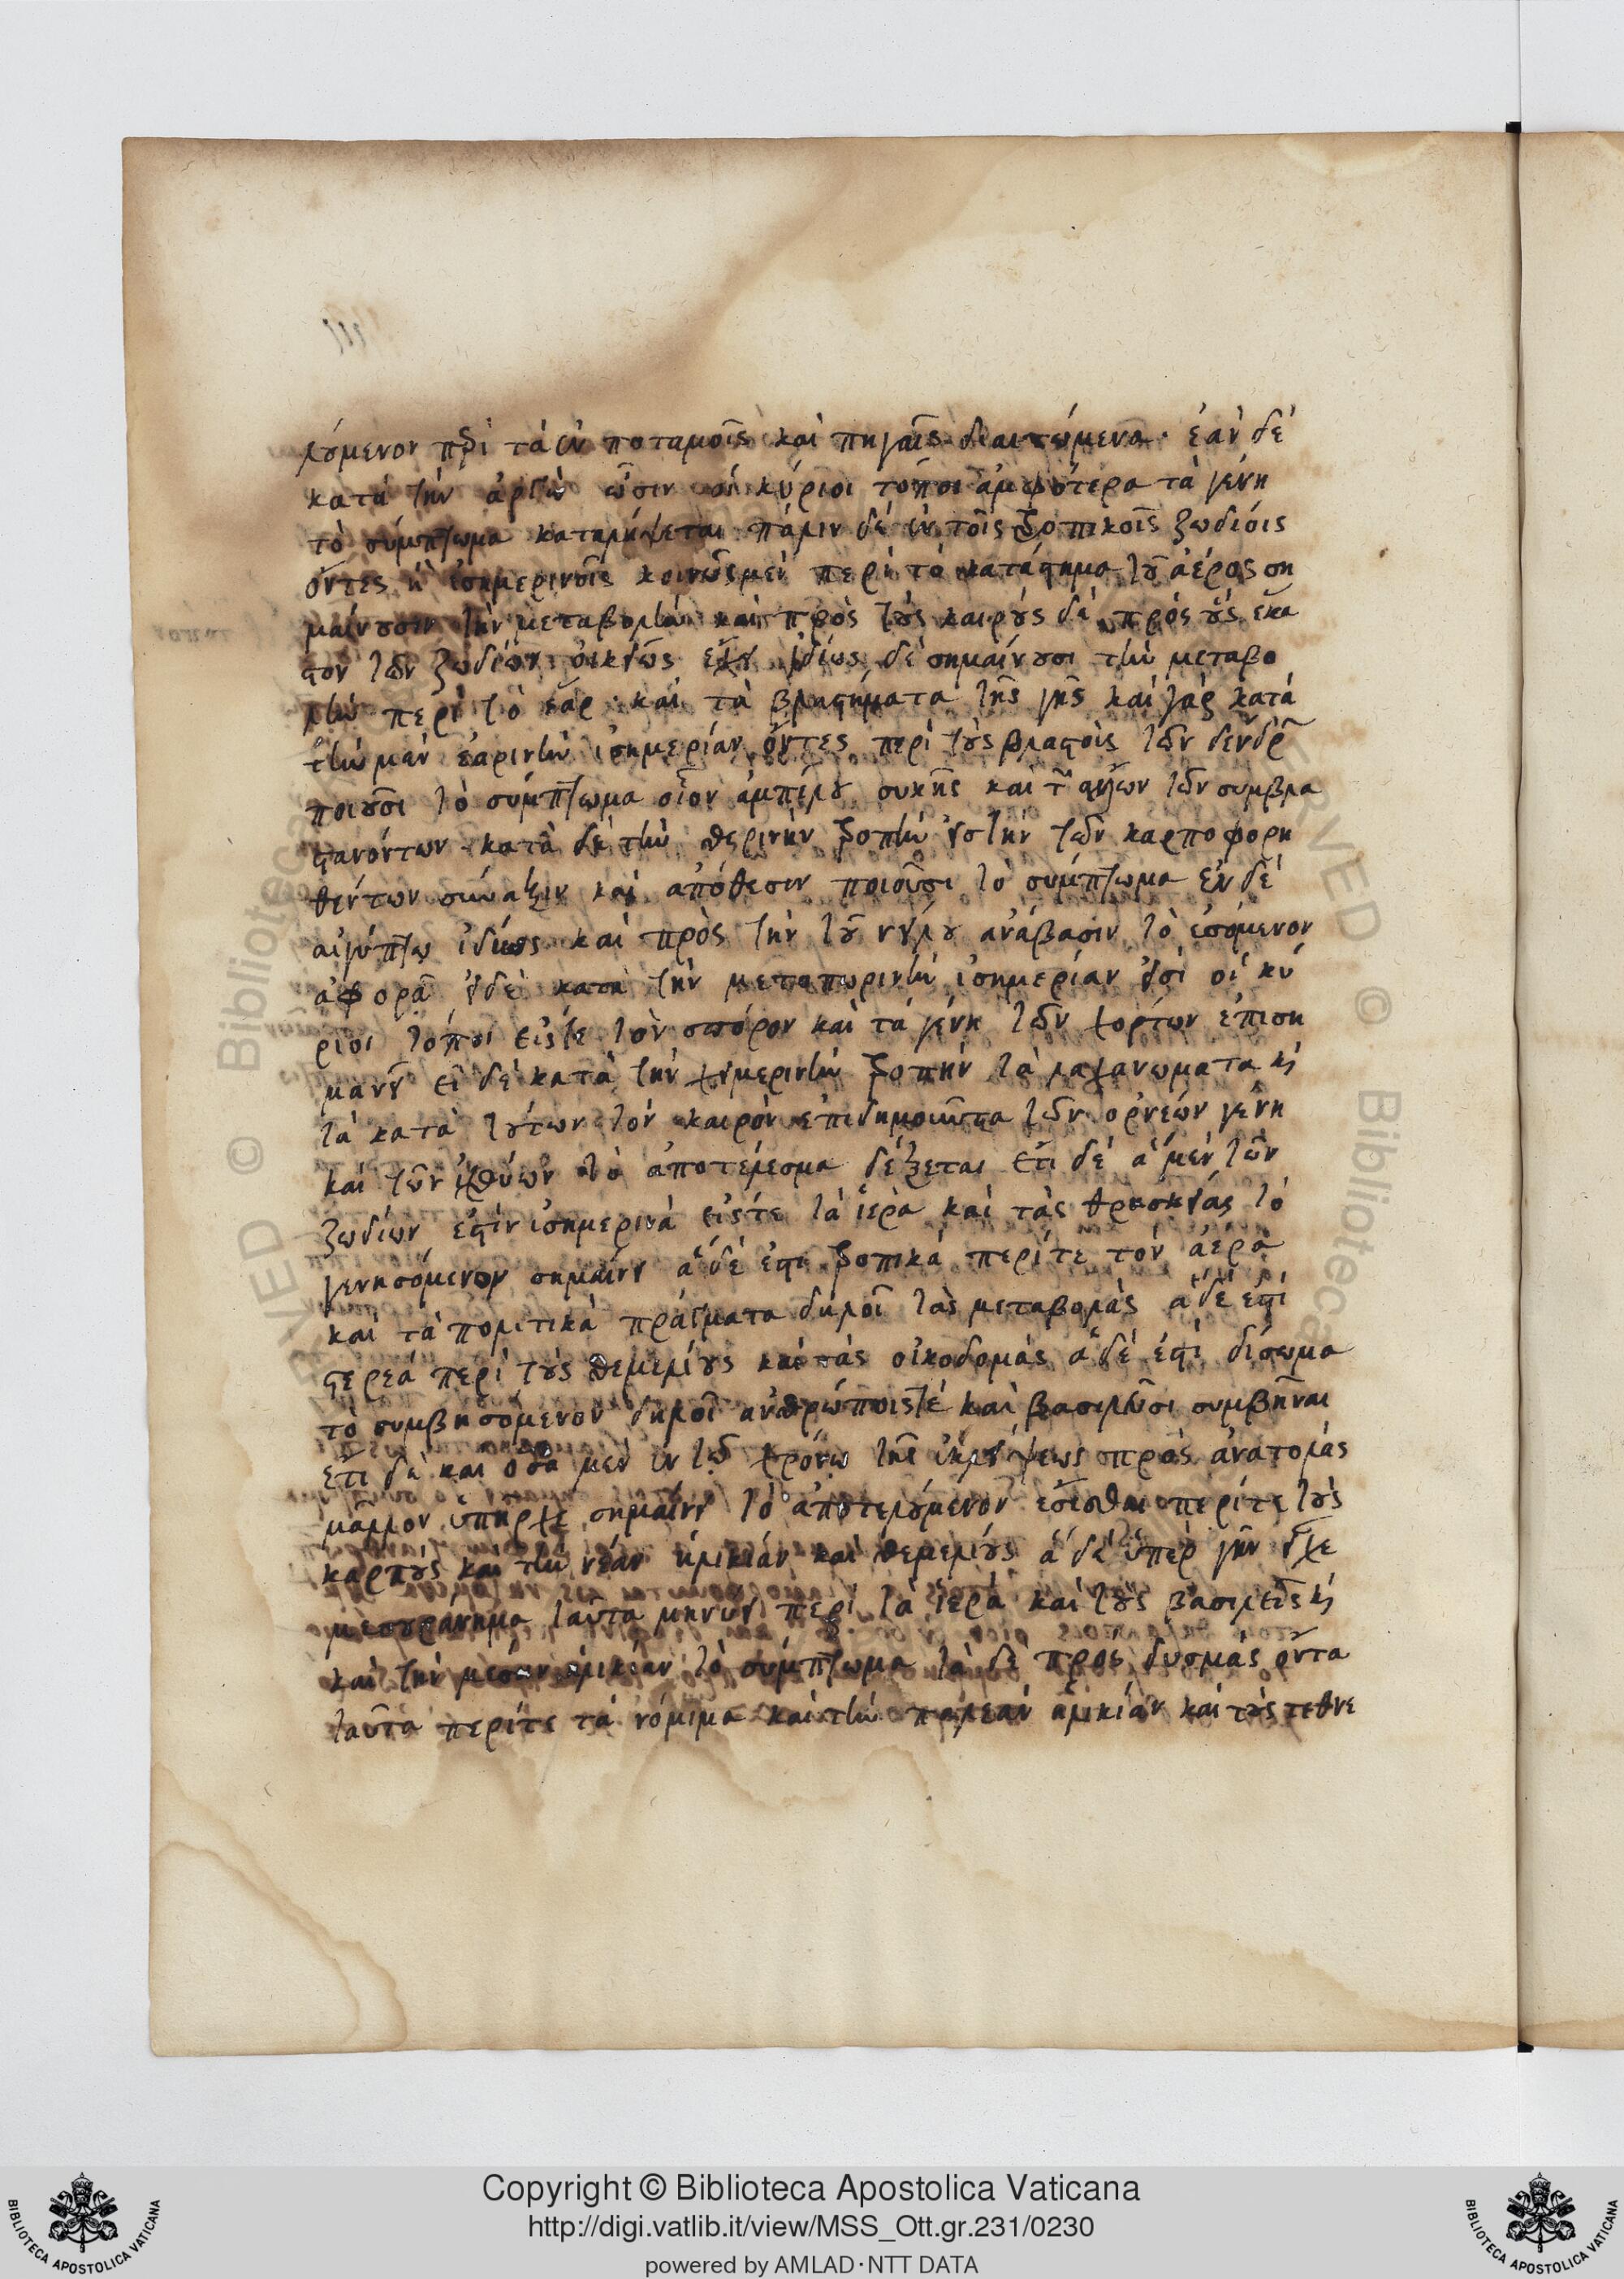 λούμενον περὶ τὰ ἐν ποταμοῖς καὶ πηγαῖς διαιτώμενα· ἐὰν δὲ
κατὰ τὴν ἀργὼ ὦσιν οἱ κύριοι τόποι ἀμφότερα τὰ γένη
τὸ σύμπτωμα καταλήψεται πάλιν δὲ ἐν τοῖς τροπικοῖς ζωδίοις
ὄντες ἢ ἰσημερινοῖς κοινῶς μὲν περὶ τὸ κατάστημα τοῦ ἀέρος ση
μαίνουσιν τὴν μεταβολὴν καὶ πρὸς τοὺς καιροὺς δὲ πρὸς οὓς ἕκα
στον τῶν ζωδίων οἰκείως ἔχει ἰδίως δὲ σημαίνουσι τὴν μεταβο
λὴν περὶ τὸ ἔαρ καὶ τὰ βλαστήματα τῆς γῆς καὶ γὰρ κατὰ
τὴν μὲν ἐαρινὴν ἰσημερίαν ὄντες περὶ τοὺς βλαστοὺς τῶν δένδρ
ποιοῦσι τὸ σύμπτωμα οἷον ἀμπέλου συκῆς καὶ τῶν ἄλλων τῶν συμβλα
στανόντων κατὰ δὲ τὴν θερινὴν τροπὴν εἰς τὴν τῶν καρποφορη
θέντων σύναξιν καὶ ἀπόθεσιν ποιοῦσι τὸ σύμπτωμα ἐν δὲ
αἰγύπτω ἰδίως καὶ πρὸς τὴν τοῦ νείλου ἀνάβασιν τὸ ἐσόμενον
ἀφορᾶ εἰ δὲ κατὰ τὴν μετοπωρινὴν ἰσημερίαν εἰσὶ οἱ κύ
ριοι τόποι εἴς τε τὸν σπόρον καὶ τὰ γένη τῶν χόρτων ἐπιση
μανεῖ εἰ δὲ κατὰ τὴν χειμερινὴν τροπὴν τὰ λαχανώματα καὶ
τὰ κατὰ τούτων τὸν καιρὸν ἐπιδημοῦντα τῶν ὀρνέων γένη
καὶ τῶν ἰχθύων τὸ ἀποτέλεσμα δέξεται ἔτι δὲ ἃ μὲν τῶν
ζωδίων ἐστὶν ἰσημερινὰ εἴς τε τὰ ἱερὰ καὶ τὰς θρησκείας τὸ
γενησόμενον σημαίνει ἃ δέ ἐστι τροπικὰ περί τε τὸν ἀέρα
καὶ τὰ πολιτικὰ πράγματα δηλοῖ τὰς μεταβολὰς ἃ δέ ἐστι
στερεὰ περὶ τοὺς θεμελίους καὶ τὰς οἰκοδομὰς ἃ δέ ἐστι δίσωμα
τὸ συμβησόμενον δηλοῖ ἀνθρώποις τε καὶ βασιλεῦσι συμβῆναι
ἔτι δὲ καὶ ὅσα μὲν ἐν τῶ χρόνω τῆς ἐκλείψεως πρὸς ἀνατολὰς
μᾶλλον ὑπῆρχε σημαίνει τὸ ἀποτελούμενον ἔσεσθαι περί τε τοὺς
καρποὺς καὶ τὴν νέαν ἡλικίαν καὶ θεμελίους ἃ δὲ ὑπὲρ γῆν εἶχε
μεσουράνημα ταῦτα μηνύει περὶ τὰ ἱερὰ καὶ τοὺς βασιλεῖς καὶ
καὶ τὴν μέσην ἡλικίαν τὸ σύμπτωμα τὰ δὲ πρὸς δυσμὰς ὄντα
ταῦτα περί τε τὰ νόμιμα καὶ τὴν παλεὰν ἡλικίαν καὶ τοὺς τεθνε
Copyright © Biblioteca Apostolica Vaticana
http://digi.vatlib.it/view/MSS_Ott.gr.231/0230
powered by AMLAD·NTT DATA
BIBLIOTECA APOSTOLICA VATICANA
BIBLIOTECA APOSTOLICA VATICANA